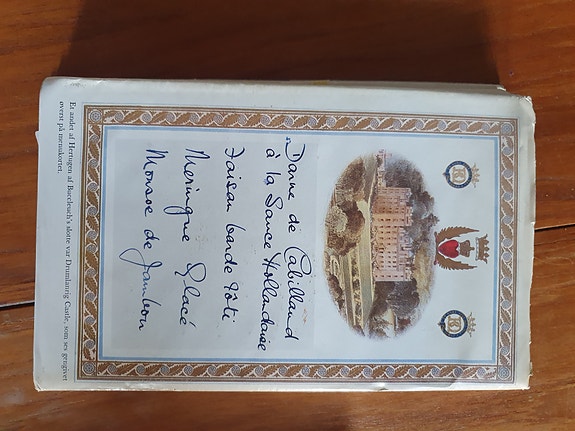 Darne de Cabillaud
à la Sauce Hollandaise
Faisan barde rôti
Meringue Glacé
Mousse de Jambon
Et andet af Hertugen af Buccleuch's slotte var Drumlanrig Castle, som ses gengivet
øverst på menukortet.